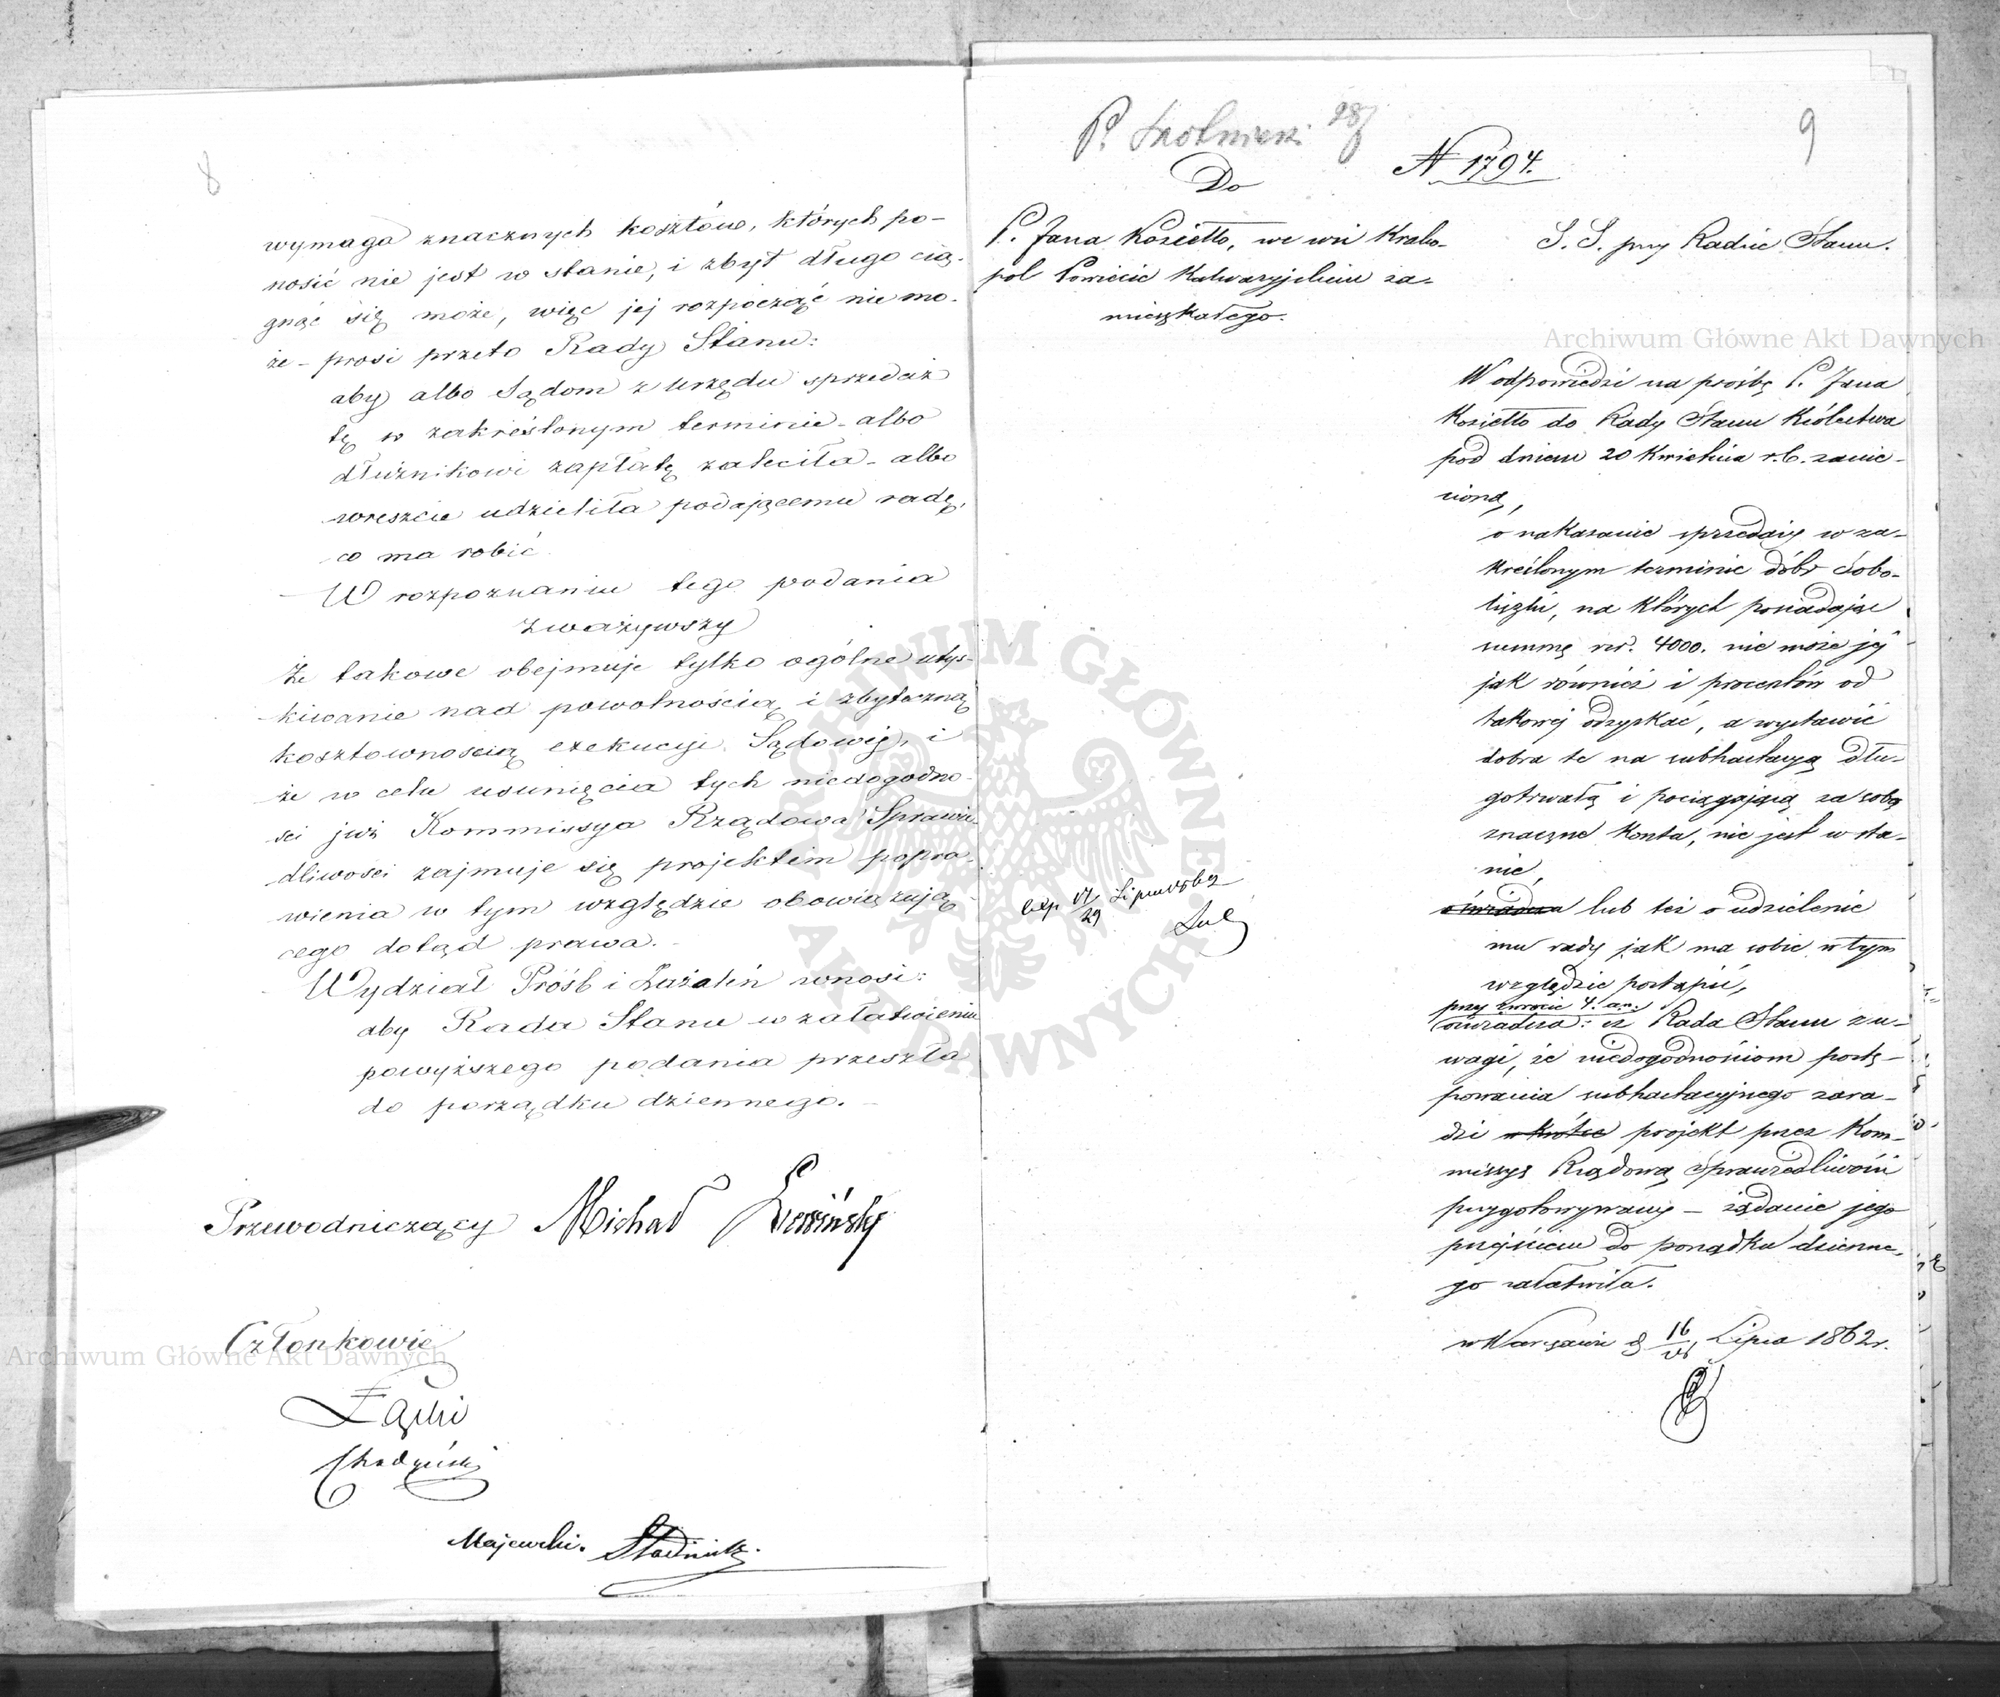 8
wymaga znacznych kosztów, których po-
nosić nie jest w stanie, i zbyt długo cią-
gnąć się może, więc jej rozpocząć nie mo-
że - prosi przeto Rady Stanu:
aby albo Sądom z urzędu sprzedaż
tę w zakreślonym terminie - albo
dłużnikowi zapłatę zaleciła - albo
wreszcie udzieliła podającemu radę,
co ma robić
W rozpoznaniu tego podania
zważywszy
że takowe obejmuje tylko ogólne utys-
kiwanie nad powolnością i zbyteczną
kosztownością exekucyi Sądowej, i
że w celu usunięcia tych niedogodno-
ści już Kommissya Rządowa Sprawie-
dliwości zajmuje się projektem popra-
wienia w tym względzie obowiązują-
cego dotąd prawa.-
Wydział Próśb i Zażaleń wnosi:
aby Rada Stanu w załatwieniu
powyższego podania przeszła
do porządku dziennego. -
Przewodniczący Michał
Członkowie
Łącki
Majewski.
9
P.
Do
N 1794.
P. Jana Kosiełło, we wsi Krako-
pol Powiecie Kalwaryjskim za-
mieszkałego.
S. S. przy Radzie Stanu.
W odpowiedzi na prośbę P. Jana
Kosiełło do Rady Stanu Królestwa
pod dniem 20 Kwietnia r. b. zanie-
sioną,
o nakazanie sprzedaży w za-
kreślonym terminie dóbr
na których posiadając
summę rsr. 4000. nie może jej
jak również i procentów od
takowej odzyskać, a wystawić
dobra te na subhastacyą dłu-
gotrwałą i pociągającą za sobą
znaczne koszta, nie jest w sta-
nie,
oświadcza lub też o udzielenie
mu rady jak ma sobie w tym
względzie postąpić,
przy zwrocie 4. an.
oświadcza: iż Rada Stanu z u-
wagi, że niedogodnościom postę-
powania subhastacyjnego zara-
dzi w krótce projekt przez Kom-
missyę Rządową Sprawiedliwości
przygotowywany - żądanie jego
przejściem do porządku dzienne-
go załatwiła.
w Warszawie d 16 Lipca 1862 r.
Archiwum Główne Akt Dawnych
Archiwum Główne Akt Dawnych
ARCHIWUM GŁÓWNE
AKT DAWNYCH